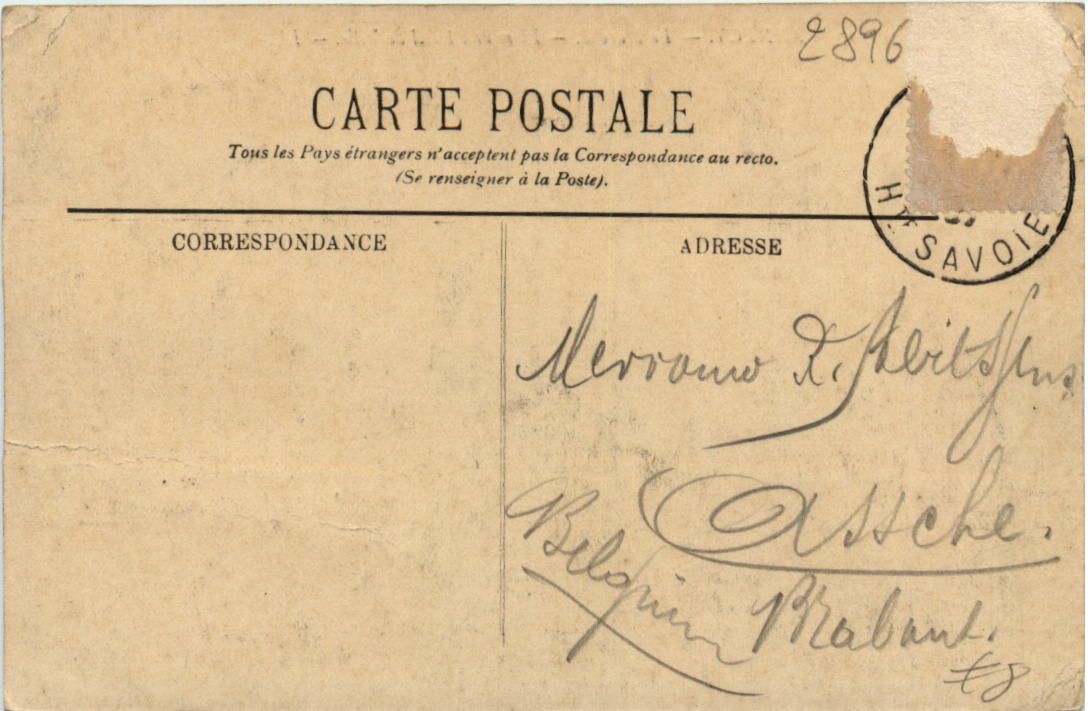 2896
CARTE POSTALE
Tous les Pays étrangers n'acceptent pas la Correspondance au recto.
(Se renseigner à la Poste).
HTE SAVOIE
CORRESPONDANCE
ADRESSE
Assche.
Belgium
Brabant.